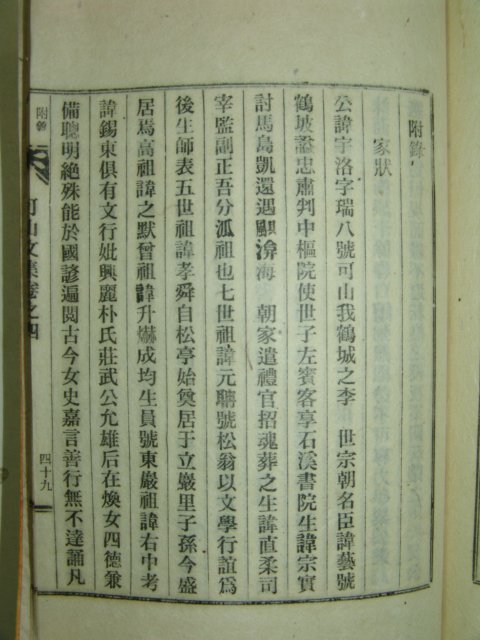 附錄
家狀
公諱宇洛字瑞八號可山我鶴城之李　世宗朝名臣諱藝號
鶴坡諡忠肅判中樞院使世子左賓客享石溪書院生諱宗實
討馬島凱還遇颶渰海　朝家遣禮官招魂葬之生諱直柔司
宰監副正吾分派祖也七世祖諱元聃號松翁以文學行誼爲
後生師表五世祖諱孝舜自松亭始奠居于立巖里子孫今盛
居焉高祖諱之默曾祖諱升爀成均生員號東巖祖諱右中考
諱錫東俱有文行妣興麗朴氏莊武公允雄后在煥女四德兼
備聰明絶殊能於國諺遍閱古今女史嘉言善行無不達誦凡
附錄
可山文集卷之四
四十九